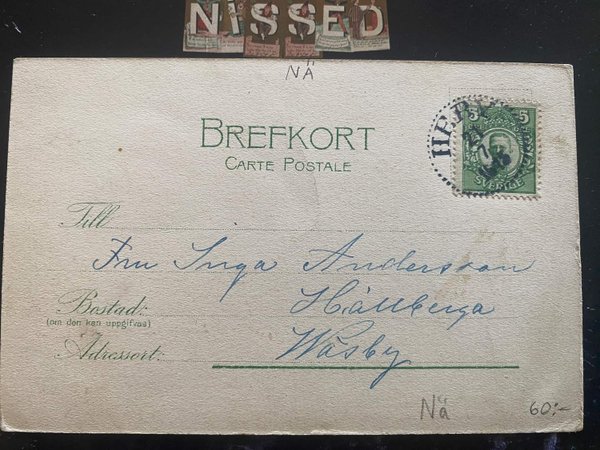 NISSED
NÄ
BREFKORT
CARTE POSTALE
5 5
SVERIGE
21
Till
Fru Inga Andersson
Bostad:
(om den kan uppgifvas)
Hällberga
Adressort:
Wäsby
Nä
60:-